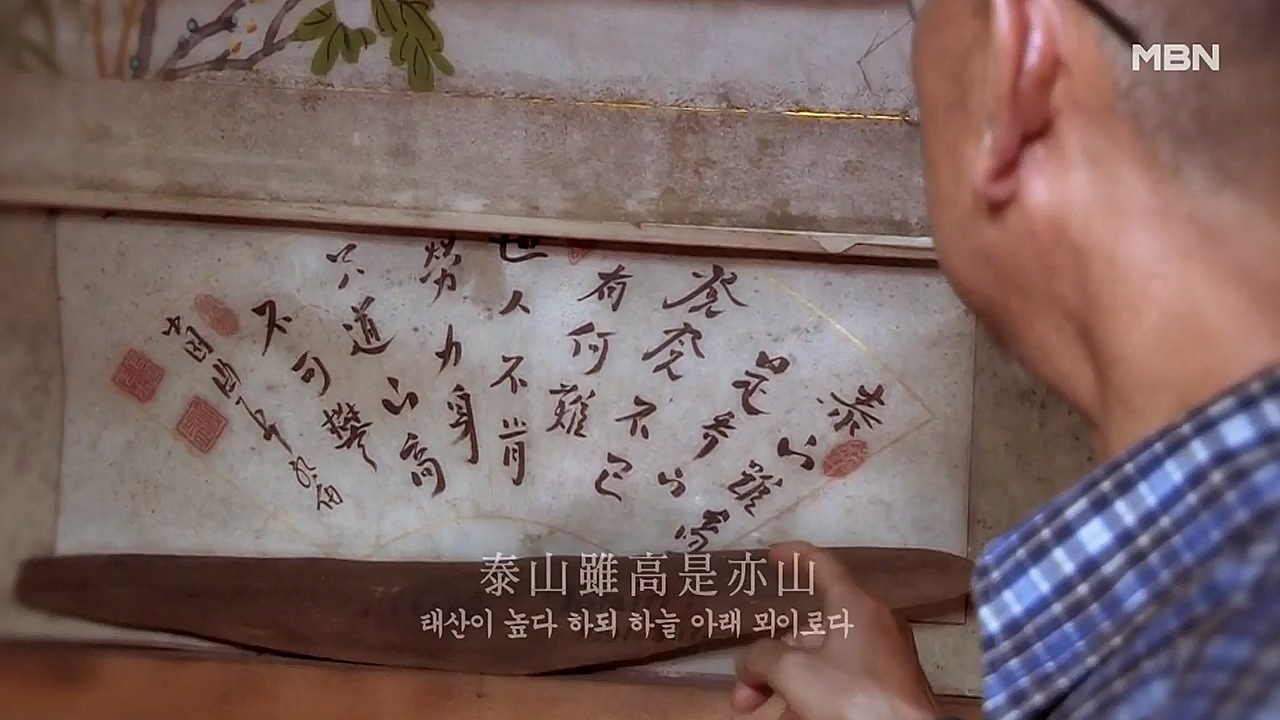 MBN
泰山雖高
是亦山
登登不已
有何難
世人不肯
勞力身
只道山高
不可攀
泰山雖高是亦山
태산이 높다 하되 하늘 아래 뫼이로다